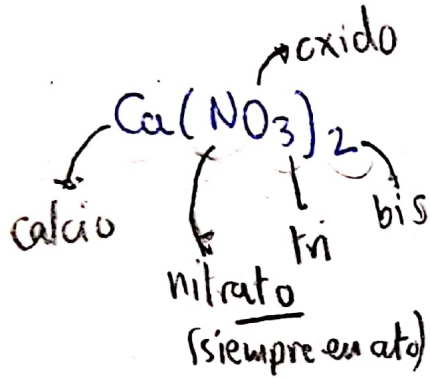 oxido
Ca(NO3)2
calcio
nitrato
tri
bis
(siempre en ato)